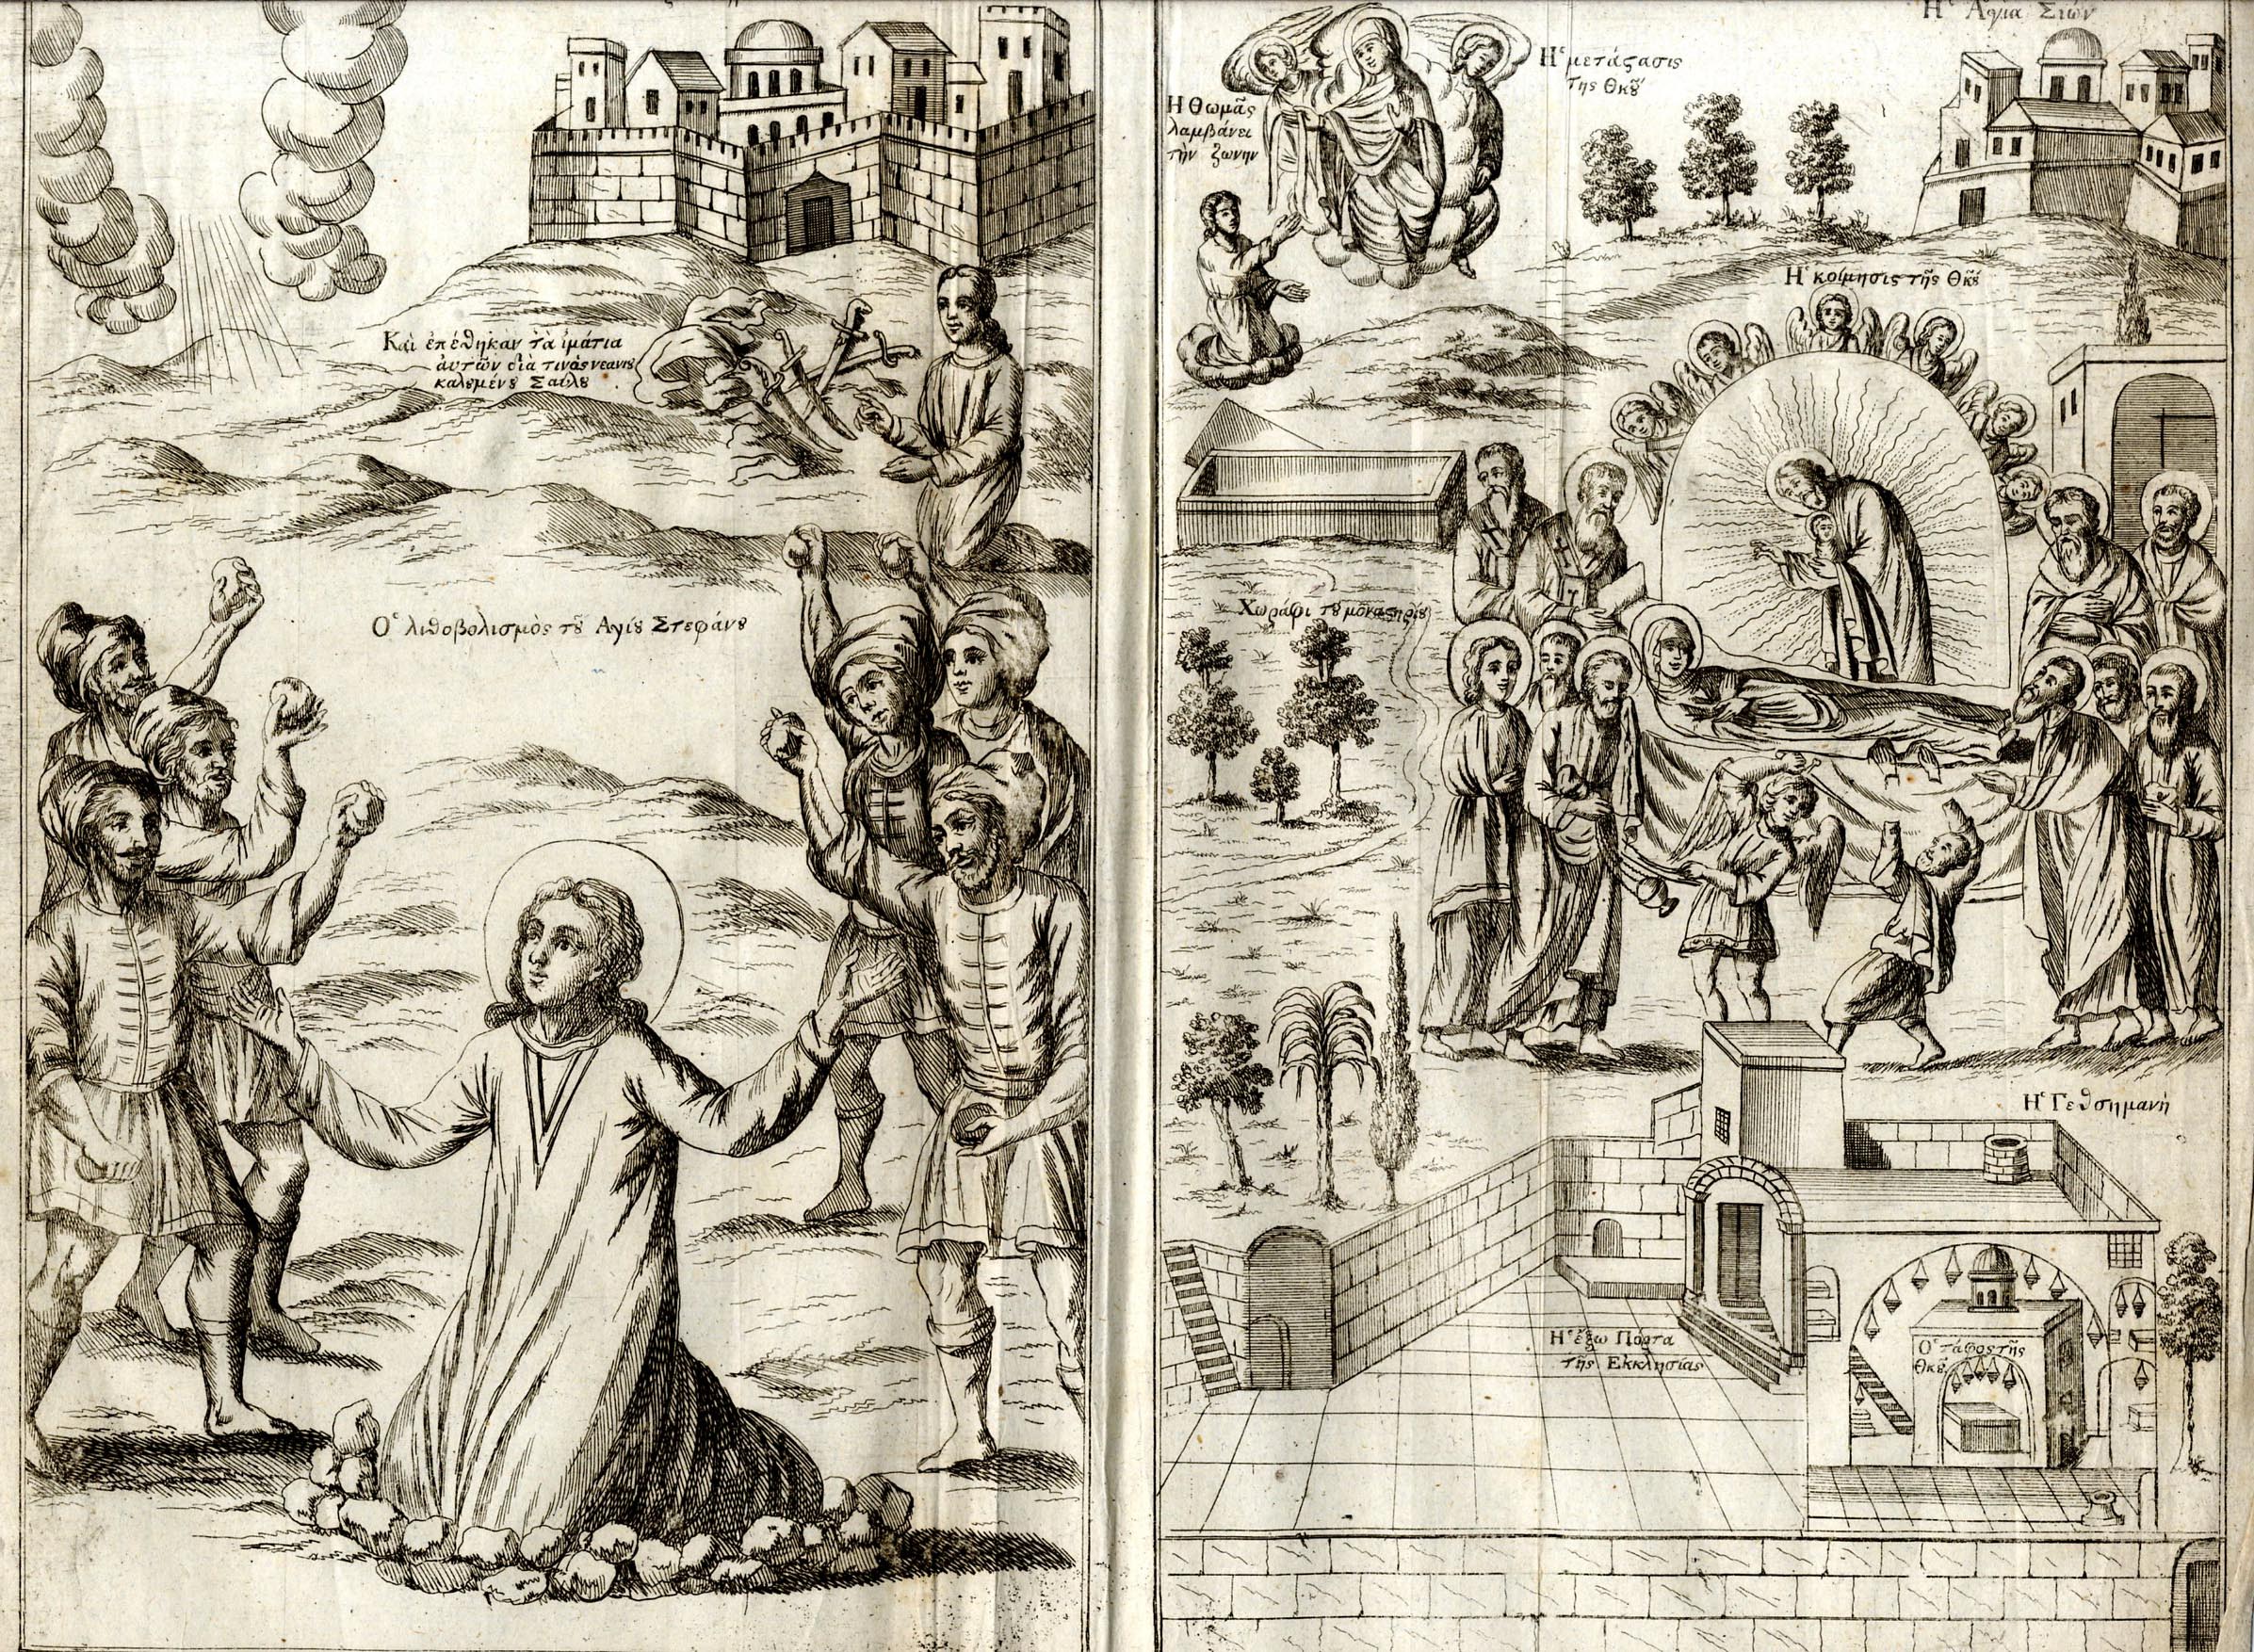 Καὶ ἐπέθηκαν τὰ ἱμάτια
ἀυτῶν διὰ τινὸς νεανιȣ
καλȣμένȣ Σαύλȣ
Ὁ λιθοβολισμὸς τȣ͂ Αγίȣ Στεφάνȣ
Ἡ Αγια Σιών
Ἡ μετάϛασις
της Θκȣ͂
Η Θωμᾶς
λαμβάνει
τὴν ζωνην
Ἡ κοίμησις τῆς Θκȣ͂
Χωράφι τȣ μοναϛηρίȣ
Ἡ Γεθσημανή
Ἡ ἔξω Πόρτα
τῆς Εκκλησίας
Ὁ τάφος τῆς
Θκȣ